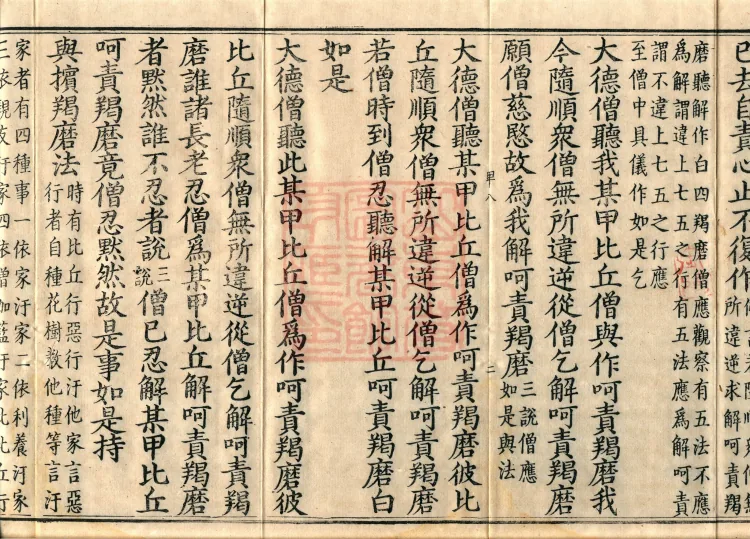 已去自責心止不復作
所違逆求解呵責羯
磨聽解作白四羯磨僧應觀察有五法不應
為解謂違上七五之行有五法應為解呵責
謂不違上七五之行應
至僧中具儀作如是乞
大德僧聽我某甲比丘僧與作呵責羯磨我
今隨順衆僧無所違逆從僧乞解呵責羯磨
願僧慈愍故為我解呵責羯磨三說僧應
如是與法
甲八
二
大德僧聽某甲比丘僧為作呵責羯磨彼比
丘隨順衆僧無所違逆從僧乞解呵責羯磨
若僧時到僧忍聽解某甲比丘呵責羯磨白
如是
大德僧聽此某甲比丘僧為作呵責羯磨彼
比丘隨順衆僧無所違逆從僧乞解呵責羯
磨誰諸長老忍僧為某甲比丘解呵責羯磨
者默然誰不忍者說三說僧已忍解某甲比丘
呵責羯磨竟僧忍默然故是事如是持
與擯羯磨法時有比丘行惡行汙他家言惡
行者自種花樹教他種等言汙
家者有四種事一依家汙家二依利養汙家
三依親友汙家四依僧伽藍汙家比丘行